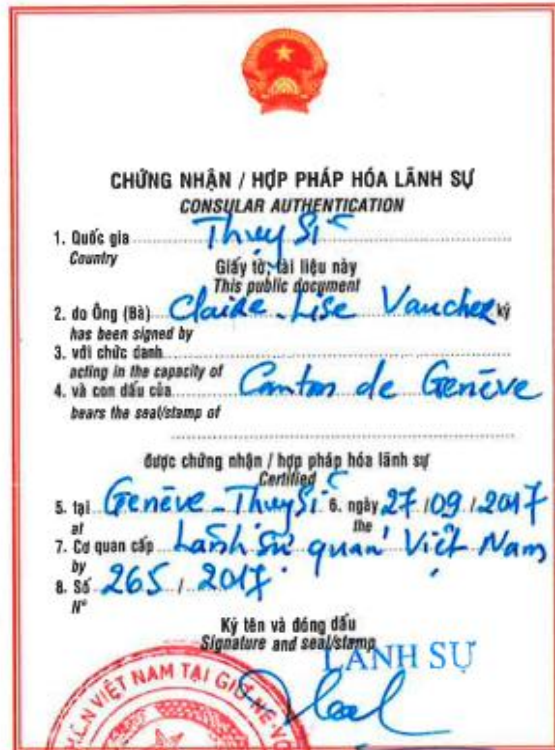 CHỨNG NHẬN / HỢP PHÁP HÓA LÃNH SỰ
CONSULAR AUTHENTICATION
1. Quốc gia Thụy Sĩ
Country
Giấy tờ, tài liệu này
This public document
2. do Ông (Bà) Claire-Lise Vaucher ký
has been signed by
3. với chức danh
acting in the capacity of
4. và con dấu của Canton de Genève
bears the seal/stamp of
được chứng nhận / hợp pháp hóa lãnh sự
Certified
5. tại Genève - Thụy Sĩ 6. ngày 27/09/2017
at the
7. Cơ quan cấp Lãnh sự quán Việt Nam
by
8. Số 265 / 2017
N°
Ký tên và đóng dấu
Signature and seal/stamp
LÃNH SỰ
VIỆT NAM TẠI